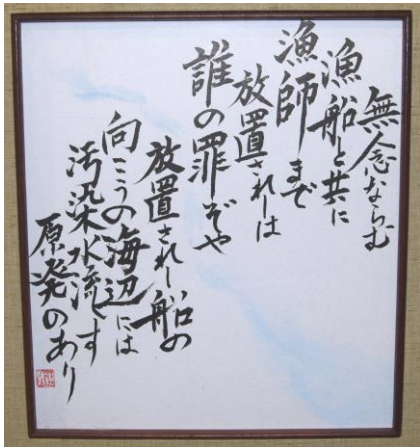 無念ならむ
漁船と共に
漁師まで
放置されしは
誰の罪ぞや
放置されし船の
向こうの海辺には
汚染水流す
原発のあり